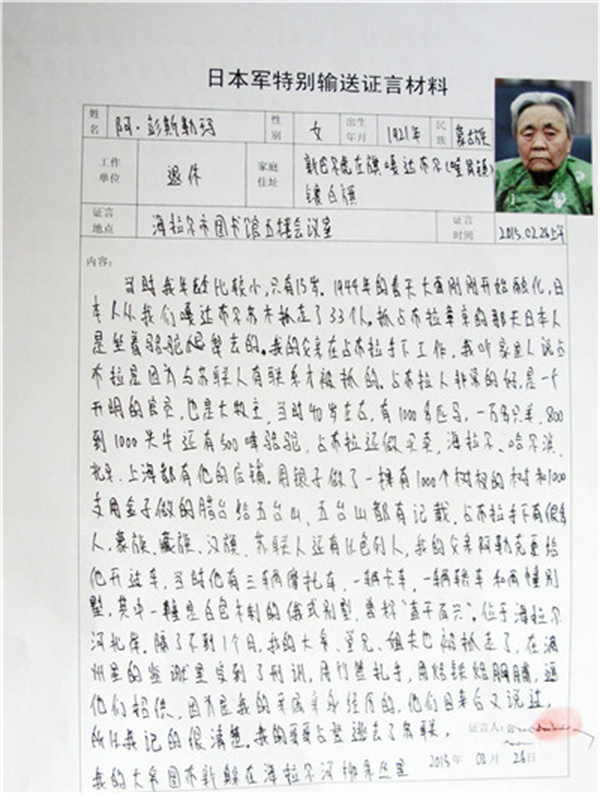 日本军特别输送证言材料
姓名 阿·彭斯勒玛 性别 女 出生年月 1921年 民族 蒙古族
工作单位 退休 家庭住址 新巴尔虎左旗嘎达布尔(嵯岗镇)
镶白旗
证言地点 海拉尔市图书馆五楼会议室 证言时间 2015.02.26上午
内容:
当时我年龄比较小,只有15岁。1944年的春天大雪刚刚开始融化,日
本人从我们嘎达布尔苏木抓走了33个人。抓占布拉拿亲的那天日本人
是坐着骆驼爬犁去的。我的父亲在占布拉手下工作,我听家里人说占
布拉是因为与苏联人有联系才被抓的。占布拉人非常的好,是一个
开明的官员,也是大牧主,当时40岁左右,有1000多匹马,一万多只羊,800
到1000头牛还有500峰骆驼,占布拉还做买卖,海拉尔、哈尔滨、
北京、上海都有他的店铺。用银子做了一棵有1000个树杈的树和1000
支用金子做的腊台给五台山、五台山都有记载。占布拉手下有很多
人,蒙族、藏族、汉族、苏联人还有犹色列人,我的父亲阿勒克更给
他开过车,当时他有三辆摩托车、一辆卡车、一辆轿车和两幢别
墅,其中一幢是白色木制的俄式别墅,曾拐"查干百兴"。位于海拉尔
河北岸。隔了不到1个月,我的大爷、堂兄、姐夫也被抓走了,在满
州里的监狱里受到了刑训,用竹签扎手,用烙铁烙胸脯,逼
他们招供。因为是我的亲戚亲身经历的,他们回来后又说过,
所以我记的很清楚。我的哥哥占登逃去了苏联,
证言人:
我的大爷图布新躲在海拉尔河柳条丛里
2015年 02月 26日